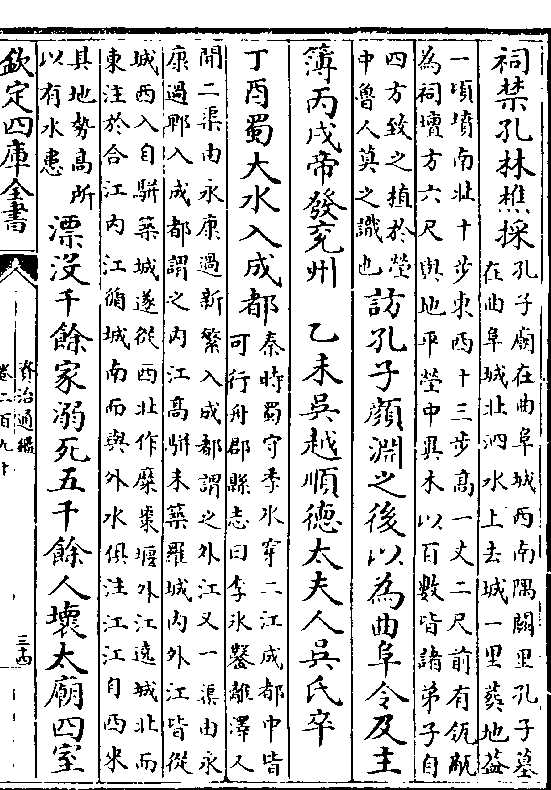 祠禁孔林樵採
孔子廟在曲阜城西南隅闕里孔子墓
在曲阜城北泗水上去城一里葬地葢
一頃墳南北十步東西十三步高一丈二尺前有瓴甋
為祠壇方六尺與地平塋中異木以百數皆諸弟子自
四方致之植於塋
中魯人莫之識也
訪孔子顔淵之後以為曲阜令及主
簿丙戌帝發兖州　乙未吳越順德太夫人吳氏卒
丁酉蜀大水入成都
秦時蜀守李氷穿二江成都中皆
可行舟郡縣志曰李氷鑿離澤又
開二渠由永康過新繁入成都謂之外江又一渠由永
康過郫入成都謂之内江高駢未築羅城内外江皆從
城西入自駢築城遂從西北作縻棗堰外江遶城北而
東注於合江内江循城南而與外水俱注江江自西來
具地勢高所
以有水患
漂没千餘家溺死五千餘人壞太廟四室
欽定四庫全書
資治通鑑
卷二百九十
三四